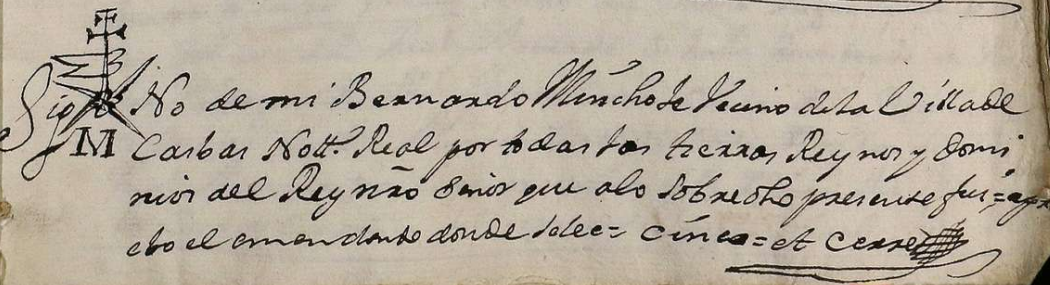 Sig No de mi Bernardo Munchote Vecino de la Villa de
M Casbas Nott.º Real por todas las tierras Reynos y Domi
nios del Rey nrõ Señor que a lo sobredho presente fui = apr
ebo el enmendado donde se lee = cinco = et cerre